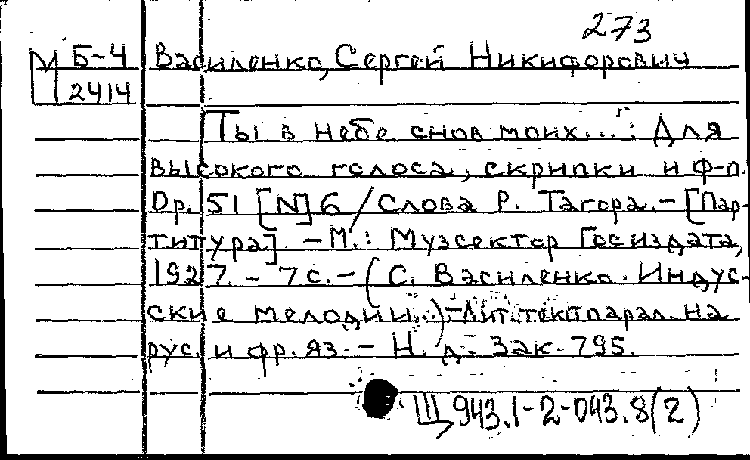 273
М Б-4 Василенко, Сергей Никифорович
2414
"Ты в небе снов моих...": Для
высокого голоса, скрипки и ф-п.
Op. 51 [N] 6 / Слова Р. Тагора. - [Пар-
титура]. - М.: Музсектор Госиздата,
1927. - 7 с. - (С. Василенко. Индус-
ские мелодии.) - Лит. текст парал. на
рус. и фр. яз. - Н. д. Зак. 795.
Щ 943.1-2-043.8(2)